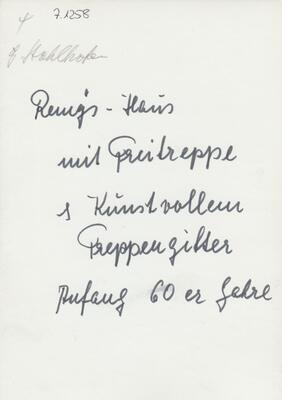 7.1258
Stahlhofen
Remy's-Haus
mit Freitreppe
s Kunstvollem
Treppengitter
Anfang 60er Jahre